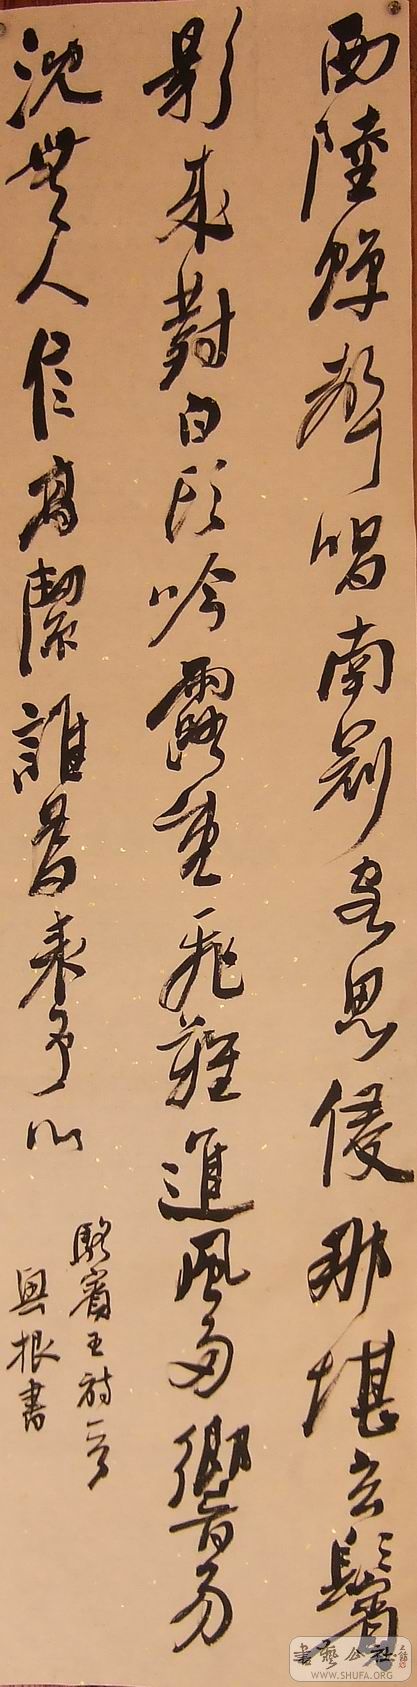 西陸蟬聲唱南冠客思侵那堪玄鬢
影来對白頭吟露重飛難進風多響易
沈無人信高潔誰為表予心
駱賓王詩一首
興根書
書藝公社
WWW.SHUFA.ORG